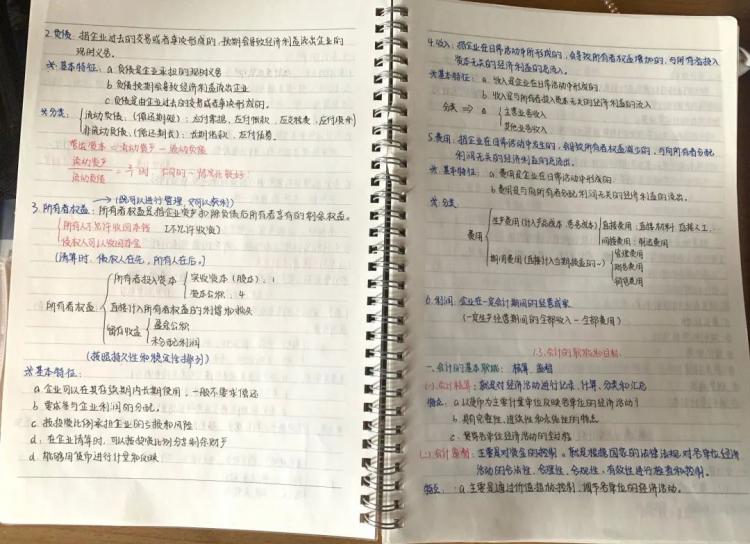 2.负债: 指企业过去的交易或者事项形成的,预期会导致经济利益流出企业的
现时义务。
※基本特征: a.负债是企业承担的现时义务
b.负债预期会导致经济利益流出企业
c.负债是由企业过去的交易或者事项形成的。
※分类: 流动负债:(偿还期短): 应付票据,应付账款
非流动负债:(偿还期长): 长期借款、应付债券
营运资本=流动资产-流动负债
流动资产
流动负债
(既可以进行管理,又可以获利)
3.所有者权益: 所有者权益是指企业资产扣除负债后所有者享有的剩余权益。
所有人不允许收回本钱 (不允许收复)
债权人可以收回本金
(清算时,债权人在先,所有人在后。)
所有者投入资本 实收资本(股本): 1
资本公积: 4
所有者权益 直接计入所有者权益的利得和损失
留存收益 盈余公积
未分配利润
(按照持久性和稳定性排列)
※基本特征:
a.企业可以在其存续期内长期使用,一般不需求偿还
b.要求参与企业利润的分配。
c.按投资比例承担企业的亏损和风险
d.在企业清算时,可以按投资比例分享剩余财产
d.能够用货币进行计量和反映
4.收入: 指企业在日常活动中所形成的,会导致所有者权益增加的,与所有者投入
资本无关的经济利益的总流入。
※基本特征: a.收入是企业在日常活动中形成的。
b.收入是与所有者投入资本无关的经济利益的流入
分类⇒ a 主营业务收入
其他业务收入
5.费用: 指企业在日常活动中发生的,会导致所有者权益减少的,与向所有者分配
利润无关的经济利益的总流出。
※基本特征: a.费用是企业在日常活动中形成的。
b.费用是与向所有者分配利润无关的经济利益的流出。
※分类
生产费用(计入产品成本,劳务成本) 直接费用: 直接材料,直接人工
间接费用: 制造费用
费用
期间费用(直接计入当期损益的~) 管理费用
财务费用
销售费用
6.利润: 企业在一定会计期间的经营成果
(一定生产经营期间的全部收入-全部费用)
1.3.会计的职能和目标
一.会计的基本职能: 核算 监督
(一).会计核算: 就是对经济活动进行记录、计算、分类和汇总
特点: a.以货币为主要计量单位反映各单位的经济活动。
b.具有完整性、连续性和系统性的特点
c.贯穿各单位经济活动的全过程
(二).会计监督: 主要是对资金的控制。就是根据国家的法律法规对各单位经济
活动的合法性、合理性、合规性、有效性进行检查和控制。
特点: a.主要是通过价值指标控制,调节各单位的经济活动。